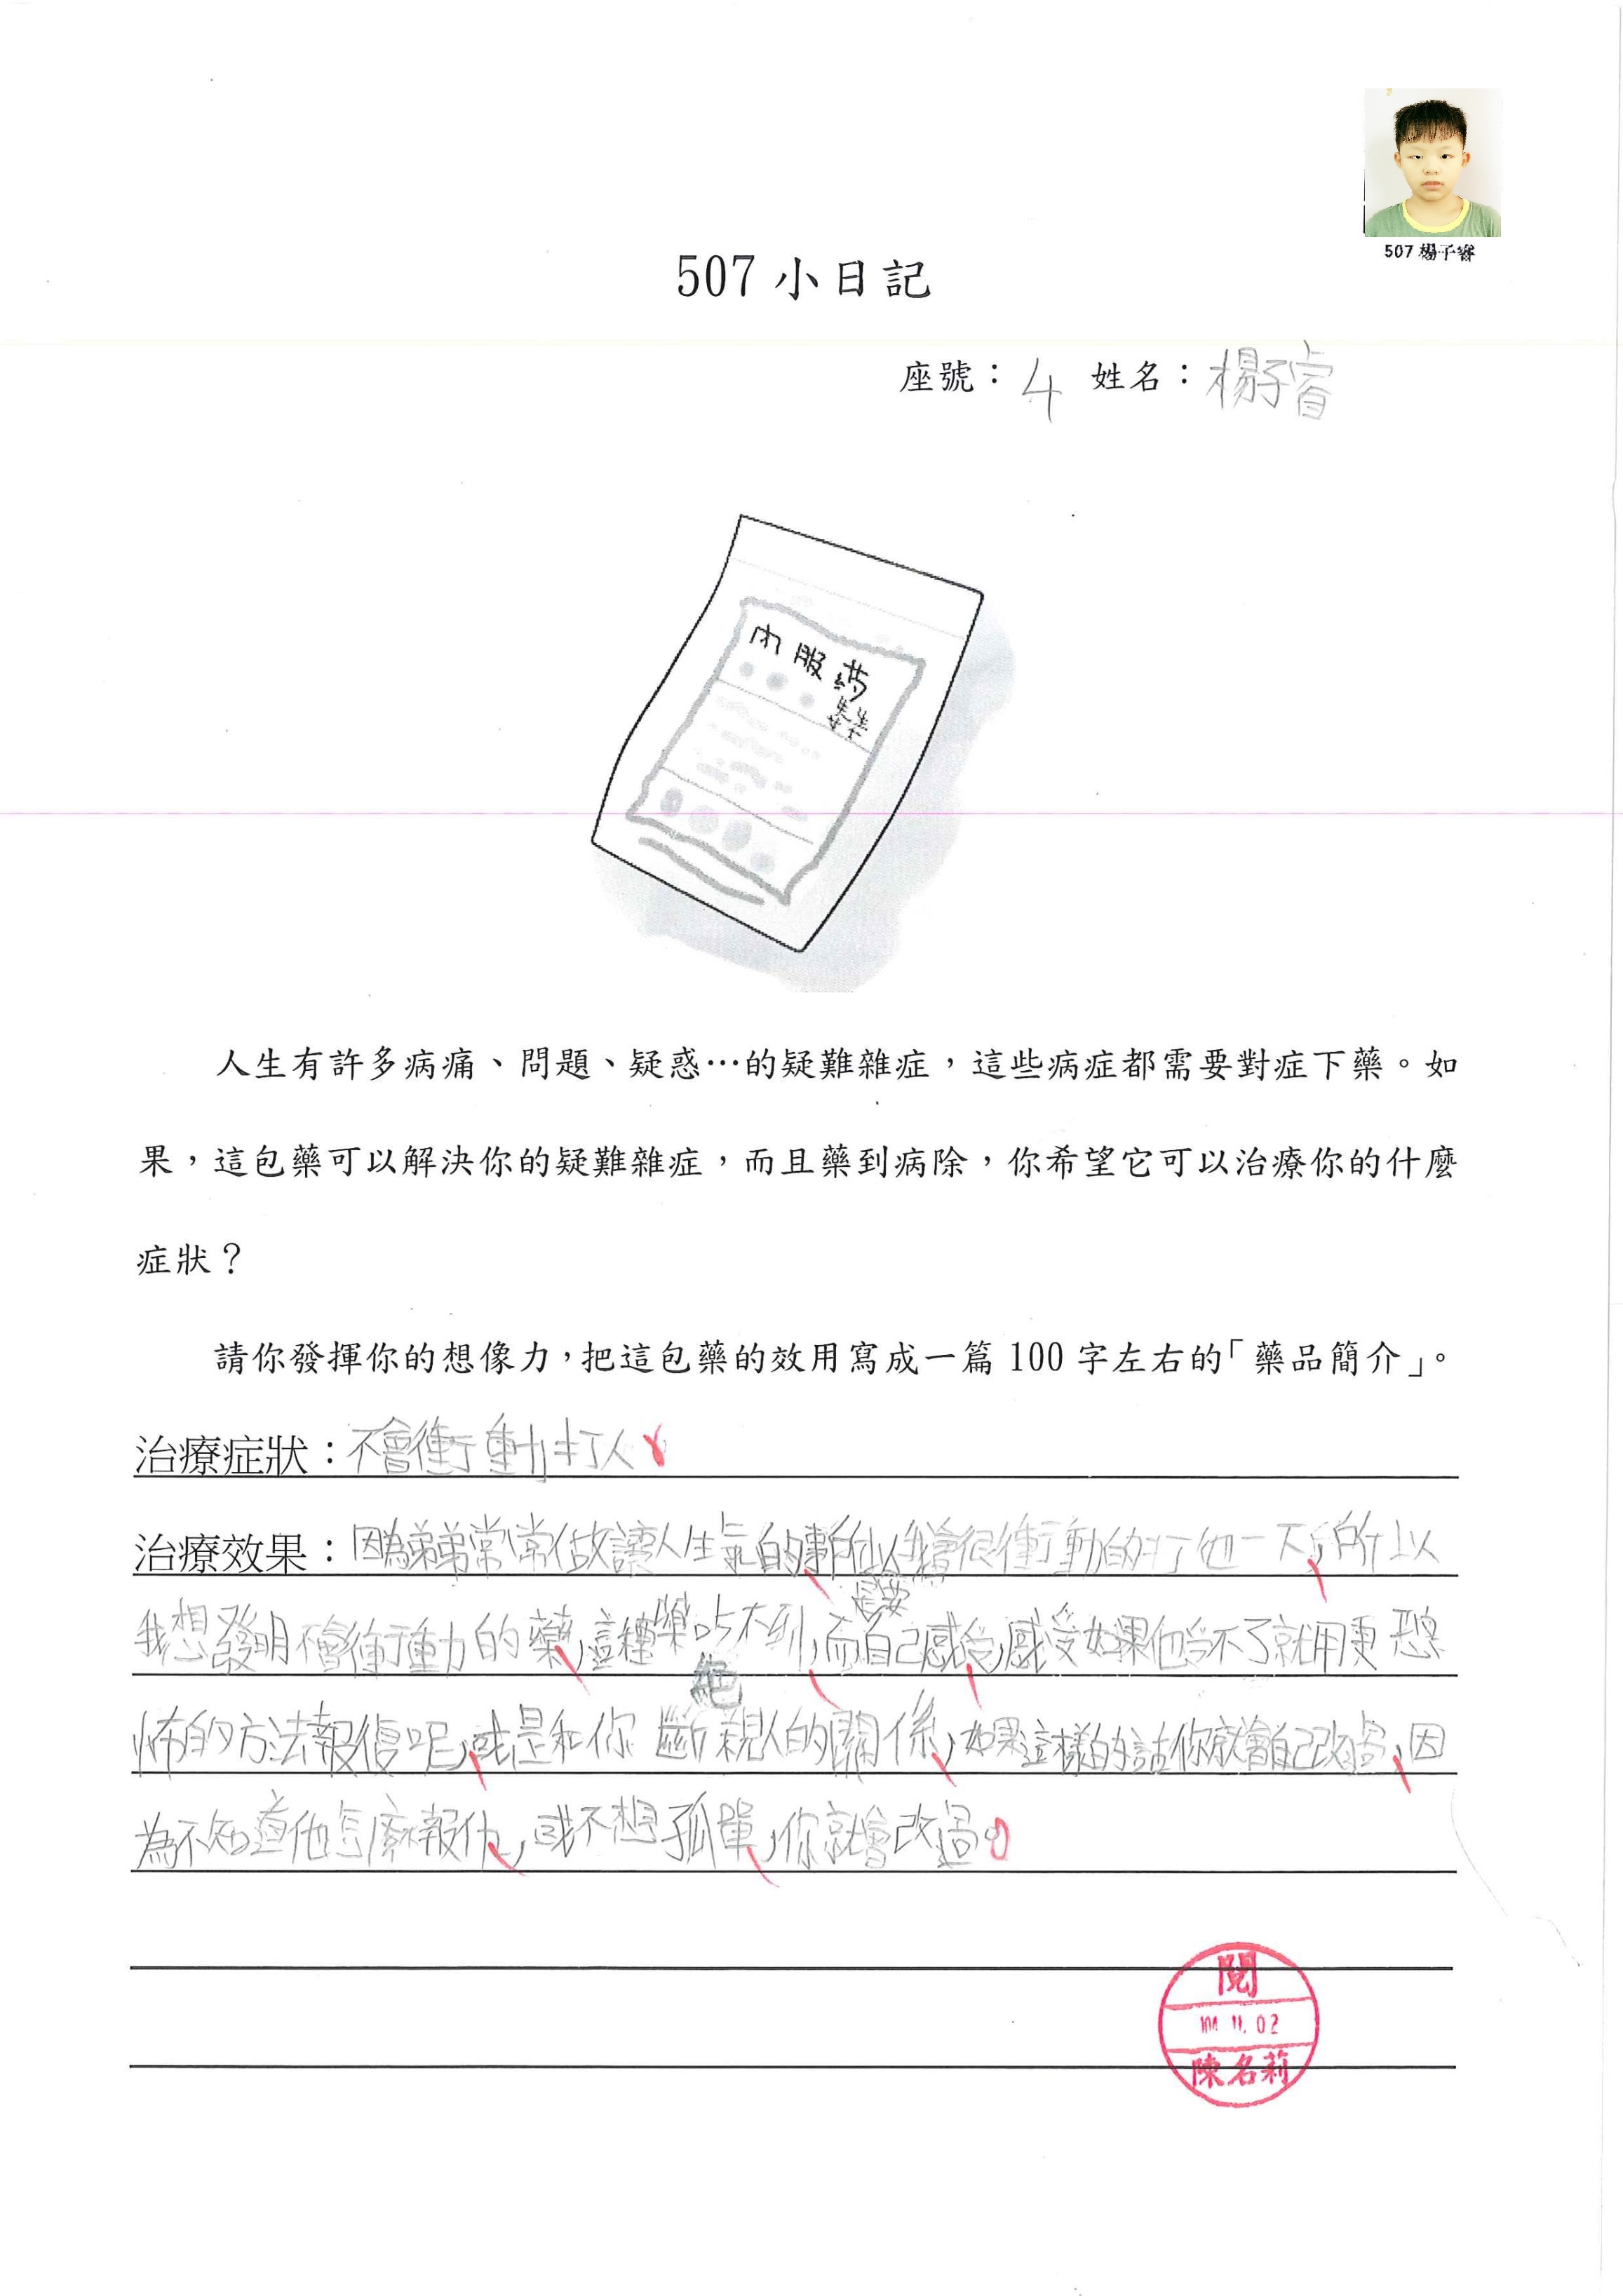 507 楊子睿
507 小日記
座號：4 姓名：楊子睿
內服藥
人生有許多病痛、問題、疑惑…的疑難雜症，這些病症都需要對症下藥。如
果，這包藥可以解決你的疑難雜症，而且藥到病除，你希望它可以治療你的什麼
症狀？
請你發揮你的想像力，把這包藥的效用寫成一篇 100 字左右的「藥品簡介」。
治療症狀：不會衝動打人。
治療效果：因為弟弟常常做讓人生氣的事，所以我會很衝動的打了他一下，所以
是要
我想發明不會衝動的藥，這種藥吃不到，而自己感受，感受如果他受不了就用更恐
絕
怖的方法報復呢，或是和你斷親人的關係，如果這樣的話你就會自己改過，因
為不知道他怎麼報仇，或不想孤單，你就會改過。
閱
104. 11. 02
陳名莉